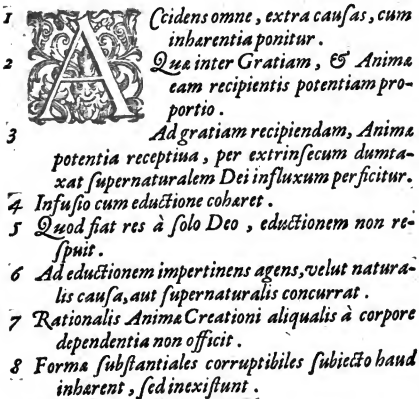 1 ACcidens omne, extra cauſas, cum
inhærentia ponitur.
2 Quæ inter Gratiam, & Animæ
eam recipientis potentiam pro-
portio.
3 Ad gratiam recipiendam, Animæ
potentia receptiua, per extrinſecum dumta-
xat ſupernaturalem Dei influxum perficitur.
4 Infuſio cum eductione cohæret.
5 Quod fiat res à ſolo Deo, eductionem non re-
ſpuit.
6 Ad eductionem impertinens agens, velut natura-
lis cauſa, aut ſupernaturalis concurrat.
7 Rationalis Animæ Creationi aliqualis à corpore
dependentia non officit.
8 Formæ ſubſtantiales corruptibiles ſubiecto haud
inhærent, ſed inexiſtunt.